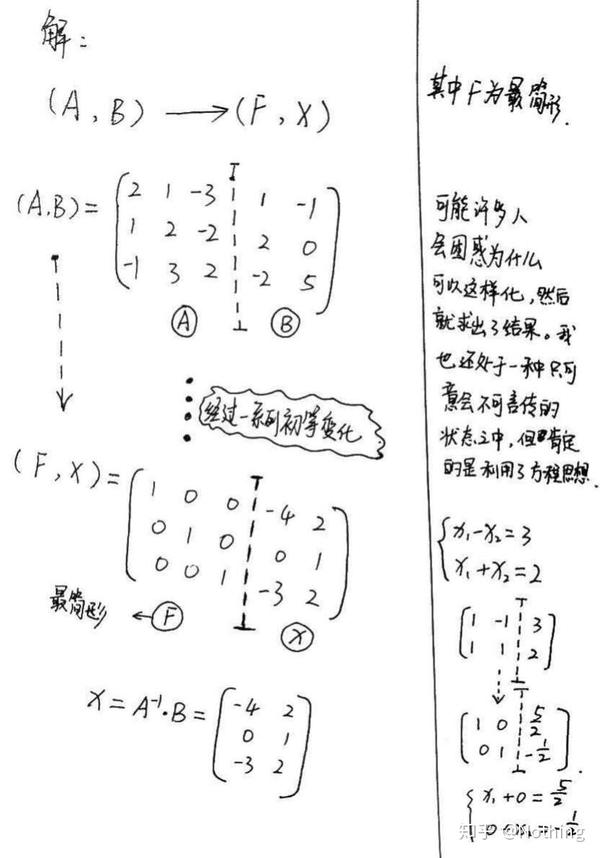 解：
(A, B) → (F, X)
(A,B) =
2 1 -3 1 -1
1 2 -2 2 0
-1 3 2 -2 5
A B
经过一系列初等变化
(F, X) =
1 0 0 -4 2
0 1 0 0 1
0 0 1 -3 2
最简形 ← F X
X = A⁻¹·B =
-4 2
0 1
-3 2
其中F为最简形.
可能许多人
会困惑为什么
可以这样化,然后
就求出了结果。我
也还处于一种只可
意会不可言传的
状态之中,但肯定
的是利用了方程思想.
x₁-x₂=3
x₁+x₂=2
1 -1 3
1 1 2
1 0 5/2
0 1 -1/2
x₁+0=5/2
知乎 @Nothing